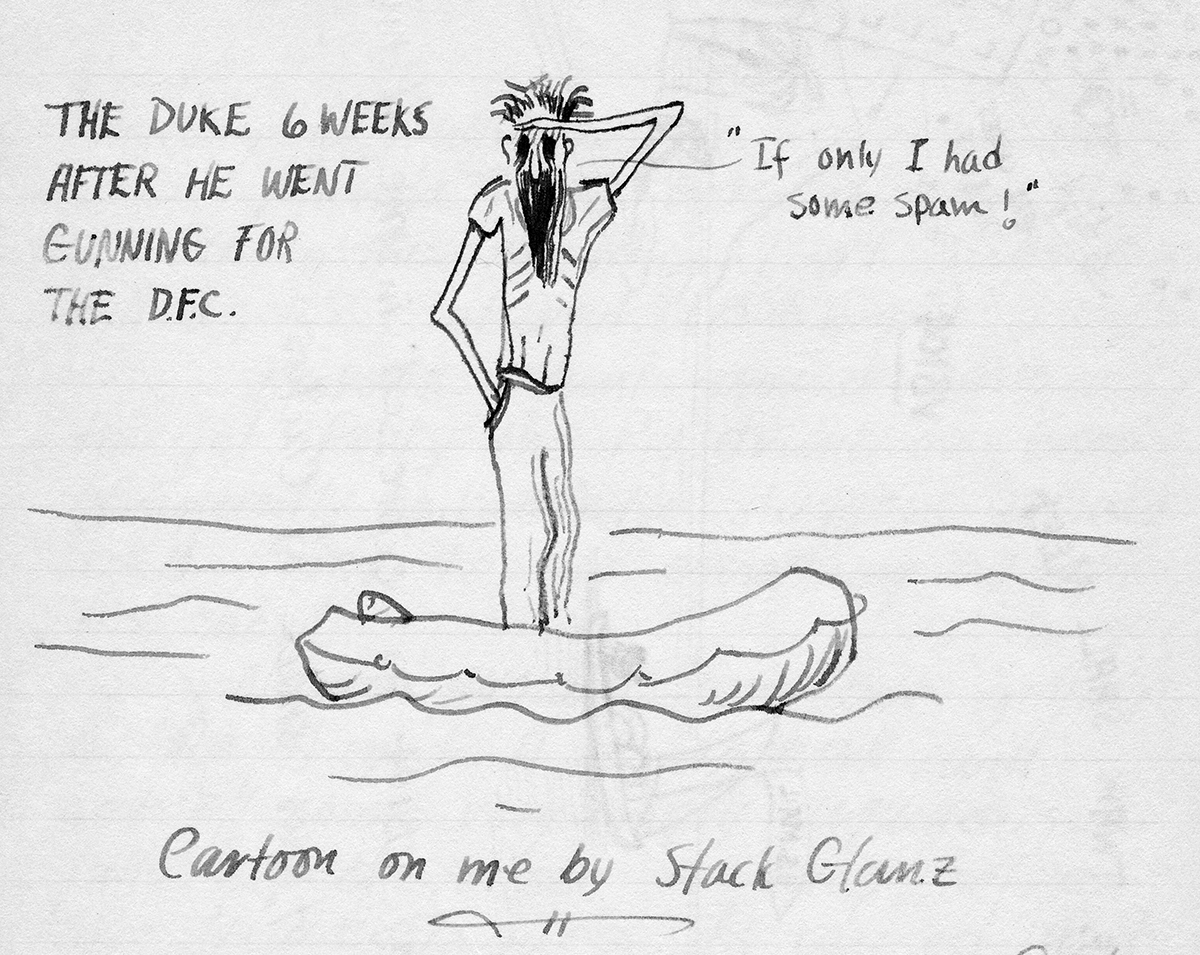 THE DUKE 6 WEEKS
AFTER HE WENT
GUNNING FOR
THE D.F.C.
"If only I had
some spam!"
Cartoon on me by Stack Glanz